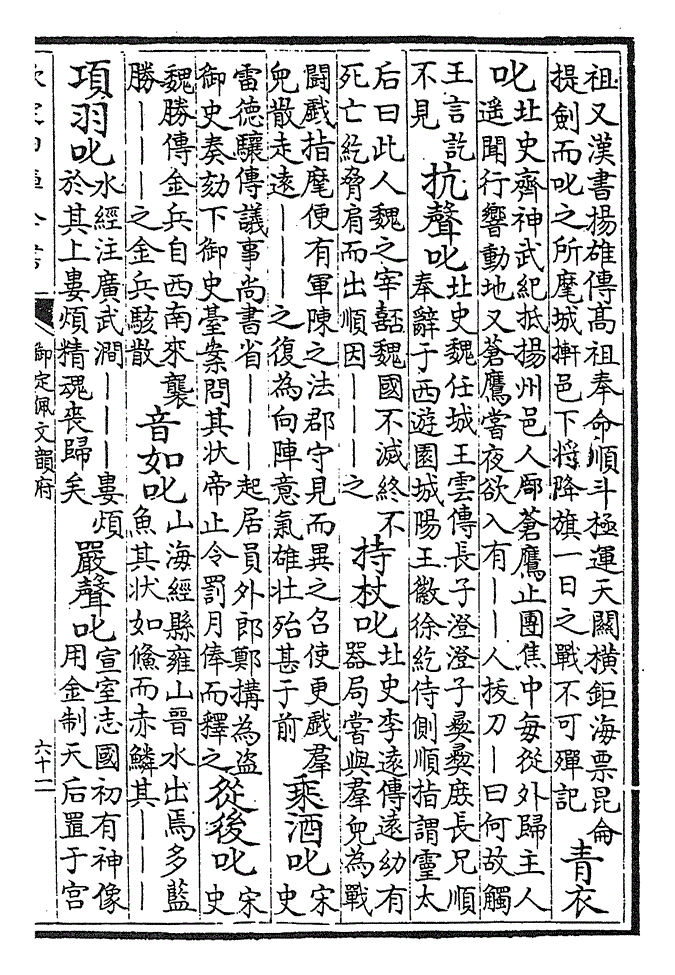 祖又漢書揚雄傳髙祖奉命順斗極運天關橫鉅海票昆侖
提劍而叱之所麾城摲邑下將降旗一日之戰不可殫記
青衣
叱
北史齊神武紀抵揚州邑人龎蒼鷹止團焦中每從外歸主人
遥聞行響動地又蒼鷹嘗夜欲入有——人拔刀—曰何故觸
王言訖
不見
抗聲叱
北史魏任城王雲傳長子澄澄子彞彞庶長兄順
奉辭于西遊園城陽王徽徐紇侍側順指謂靈太
后曰此人魏之宰嚭魏國不滅終不
死亡紇脅肩而出順因———之
持杖叱
北史李遠傳遠幼有
器局嘗與羣兒為戰
闘戲指麾便有軍陳之法郡守見而異之召使更戲羣
兒散走遠———之復為向陣意氣雄壯殆甚于前
乘酒叱
宋
史
雷德驤傳議事尚書省———起居員外郎鄭搆為盗
御史奏劾下御史臺案問其狀帝止令罰月俸而釋之
從後叱
宋
史
魏勝傳金兵自西南來襲
勝———之金兵駭散
音如叱
山海經縣雍山晉水出焉多藍
魚其状如儵而赤鱗其———
項羽叱
水經注廣武澗———婁煩
於其上婁煩精魂喪歸矣
嚴聲叱
宣室志國初有神像
用金制天后置于宫
欽定四庫全書
御定佩文韻府
六十二